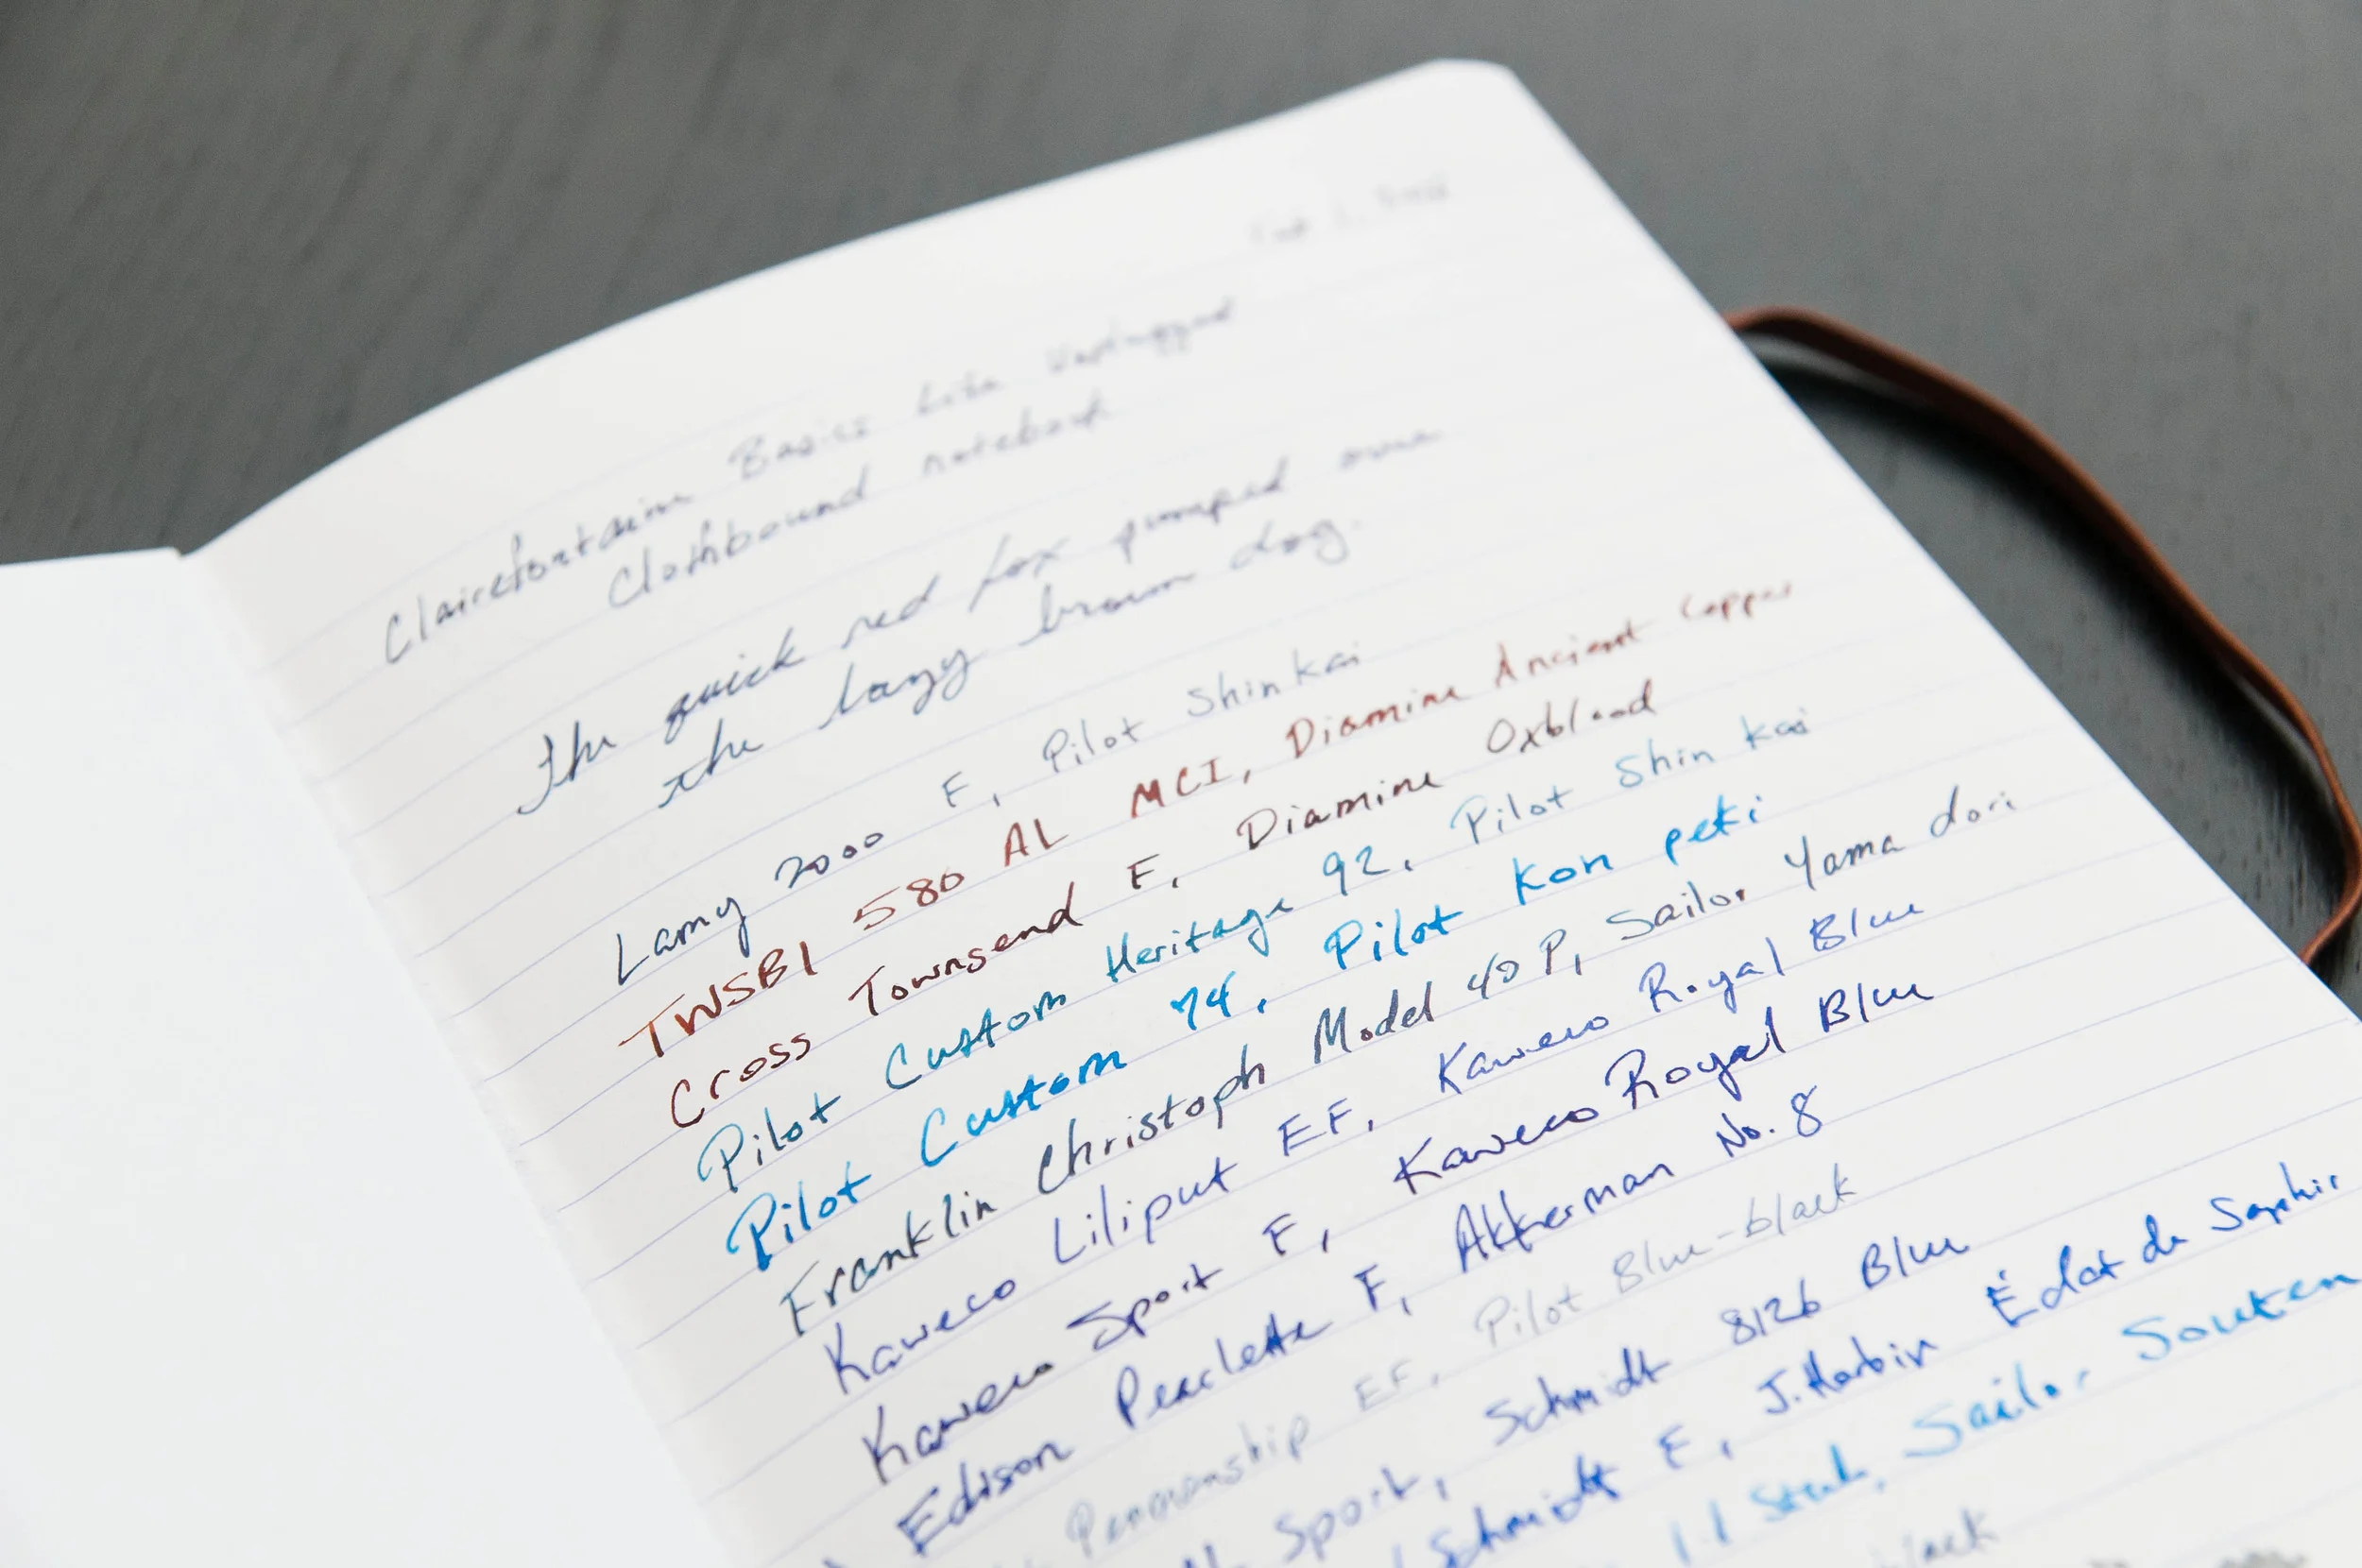 Clairefontaine Basics Life Unplugged
Clothbound notebook
The quick red fox jumped over
the lazy brown dog.
Lamy 2000 F, Pilot Shin kai
TWSBI 580 AL MCI, Diamine Ancient Copper
Cross Townsend F, Diamine Oxblood
Pilot Custom Heritage 92, Pilot Shin kai
Pilot Custom 74, Pilot Kon peki
Franklin Christoph Model 40 P, Sailor Yama dori
Kaweco Liliput EF, Kaweco Royal Blue
Kaweco Sport F, Kaweco Royal Blue
Edison Pearlette F, Akkerman No. 8
Penmanship EF, Pilot Blue-black
Sport, Schmidt 8126 Blue
Schmidt F, J. Herbin Éclat de Saphir
1.1 Stub, Sailor Souten
black